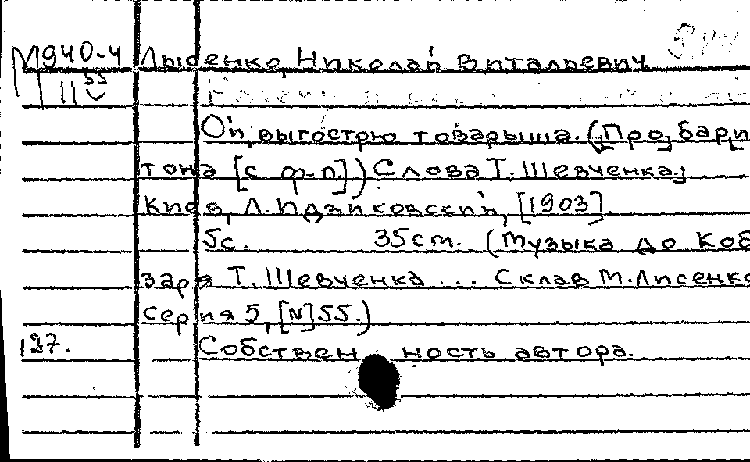 М940-4 Лысенко, Николай Витальевич
11 55
Ой, выгострю товарыша. (Про, барı
тона [с ф-п.]) Слова Т. Шевченка;
Киев, Л. Идзиковский, [1903].
5с. 35cm. (Музыка до Коб
заря Т. Шевченка ... Склав М. Лисенко
Серия 5, [N]55.)
127. Собствен ность автора.